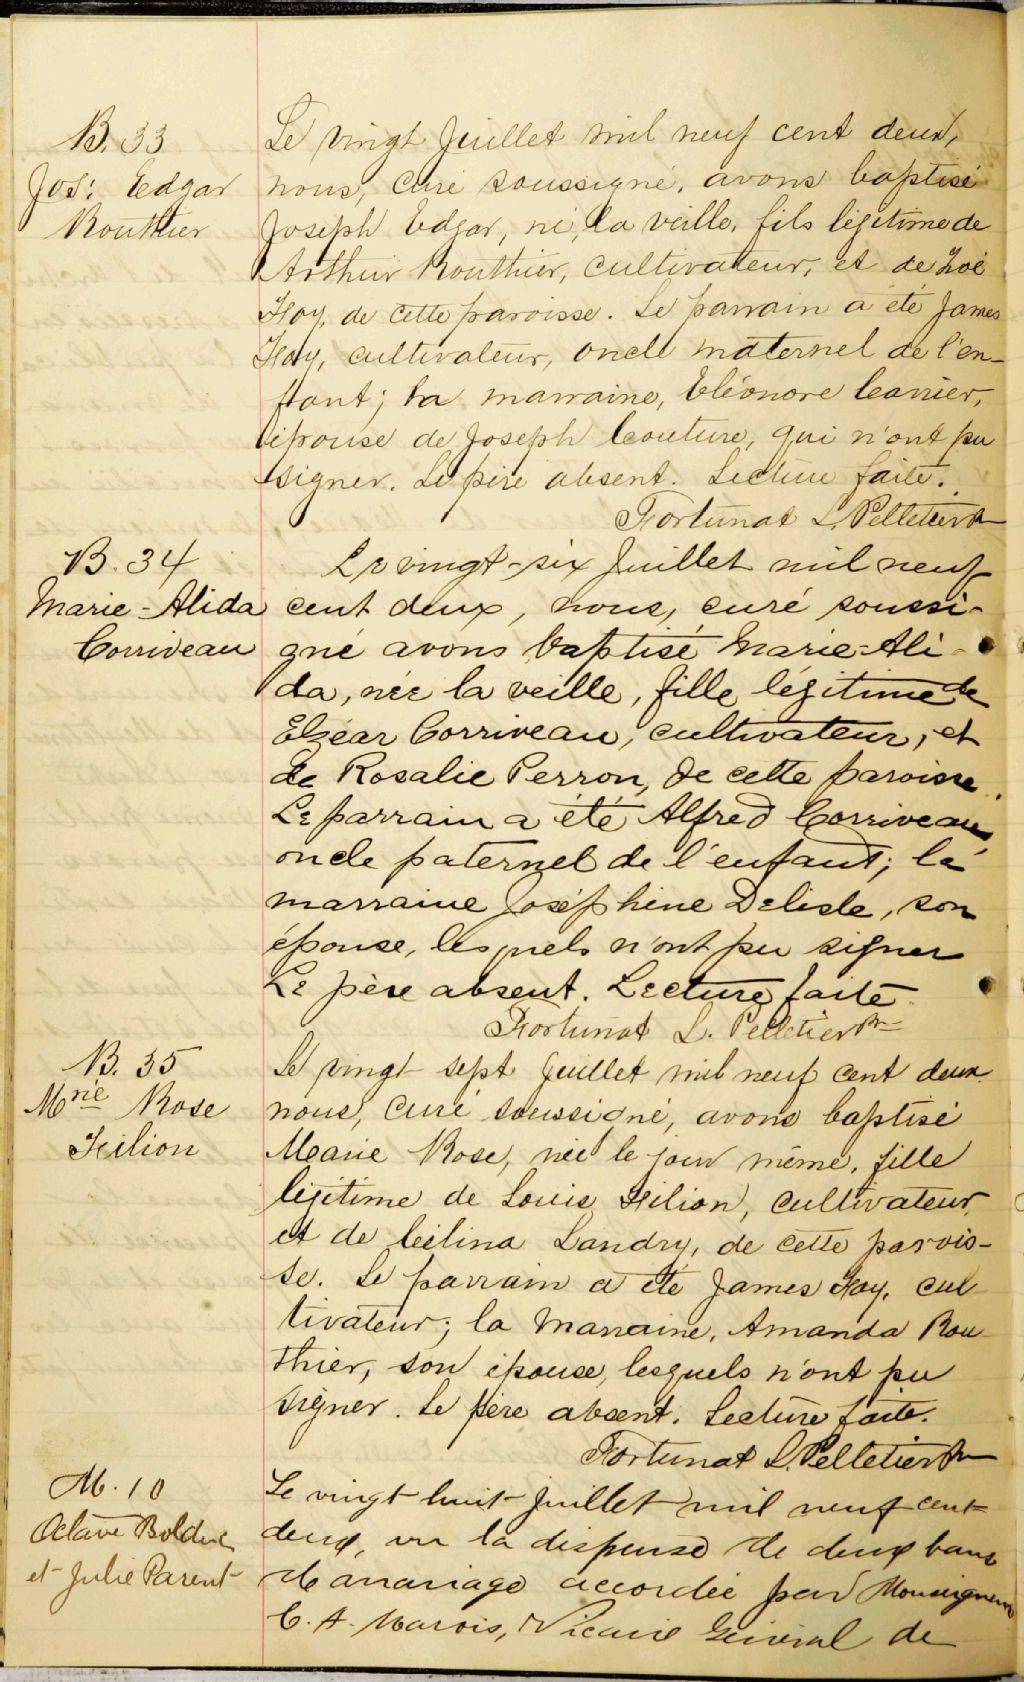 B. 33
Jos: Edgar
Routhier
Le vingt Juillet mil neuf cent deux,
nous, curé soussigné, avons baptisé
Joseph Edgar, né, la veille, fils légitime de
Arthur Routhier, cultivateur, et de Zoé
Foy, de cette paroisse. Le parrain a été James
Foy, cultivateur, oncle maternel de l'en-
fant; la marraine, Eléonore Carrier,
épouse de Joseph Couture, qui n'ont pu
signer. Le père absent. Lecture faite.
Fortunat L. Pelletier Ptre
B. 34
Marie-Alida
Corriveau
Le vingt-six Juillet mil neuf
cent deux, nous, curé soussi-
gné avons baptisé Marie-Ali-
da, née la veille, fille légitime de
Elzéar Corriveau, cultivateur, et
de Rosalie Perron, de cette paroisse.
Le parrain a été Alfred Corriveau,
oncle paternel de l'enfant; la
marraine Joséphine Delisle, son
épouse, lesquels n'ont pu signer
Le père absent. Lecture faite
Fortunat L. Pelletier Ptre
B. 35
Mrie Rose
Filion
Le vingt sept Juillet mil neuf cent deux
nous, curé soussigné, avons baptisé
Marie Rose, née le jour même, fille
légitime de Louis Filion, cultivateur,
et de Célina Landry, de cette parois-
se. Le parrain a été James Foy, cul-
tivateur; la marraine, Amanda Rou
thier, son épouse, lesquels n'ont pu
signer. Le père absent. Lecture faite.
Fortunat L. Pelletier Ptre
M. 10
Octave Bolduc
et Julie Parent
Le vingt huit Juillet mil neuf cent
deux, vu la dispense de deux bans
de mariage accordée par Monseigneur
C. A. Marois, Vicaire Général de